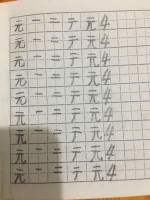 元 一 二 テ 元 4
元 一 二 テ 元 4
元 一 二 テ 元 4
元 一 二 テ 元 4
元 一 二 テ 元 4
元 一 二 テ 元 4
元 一 二 テ 元 4
元 一 二 テ 元 4
元 一 二 テ 元 4